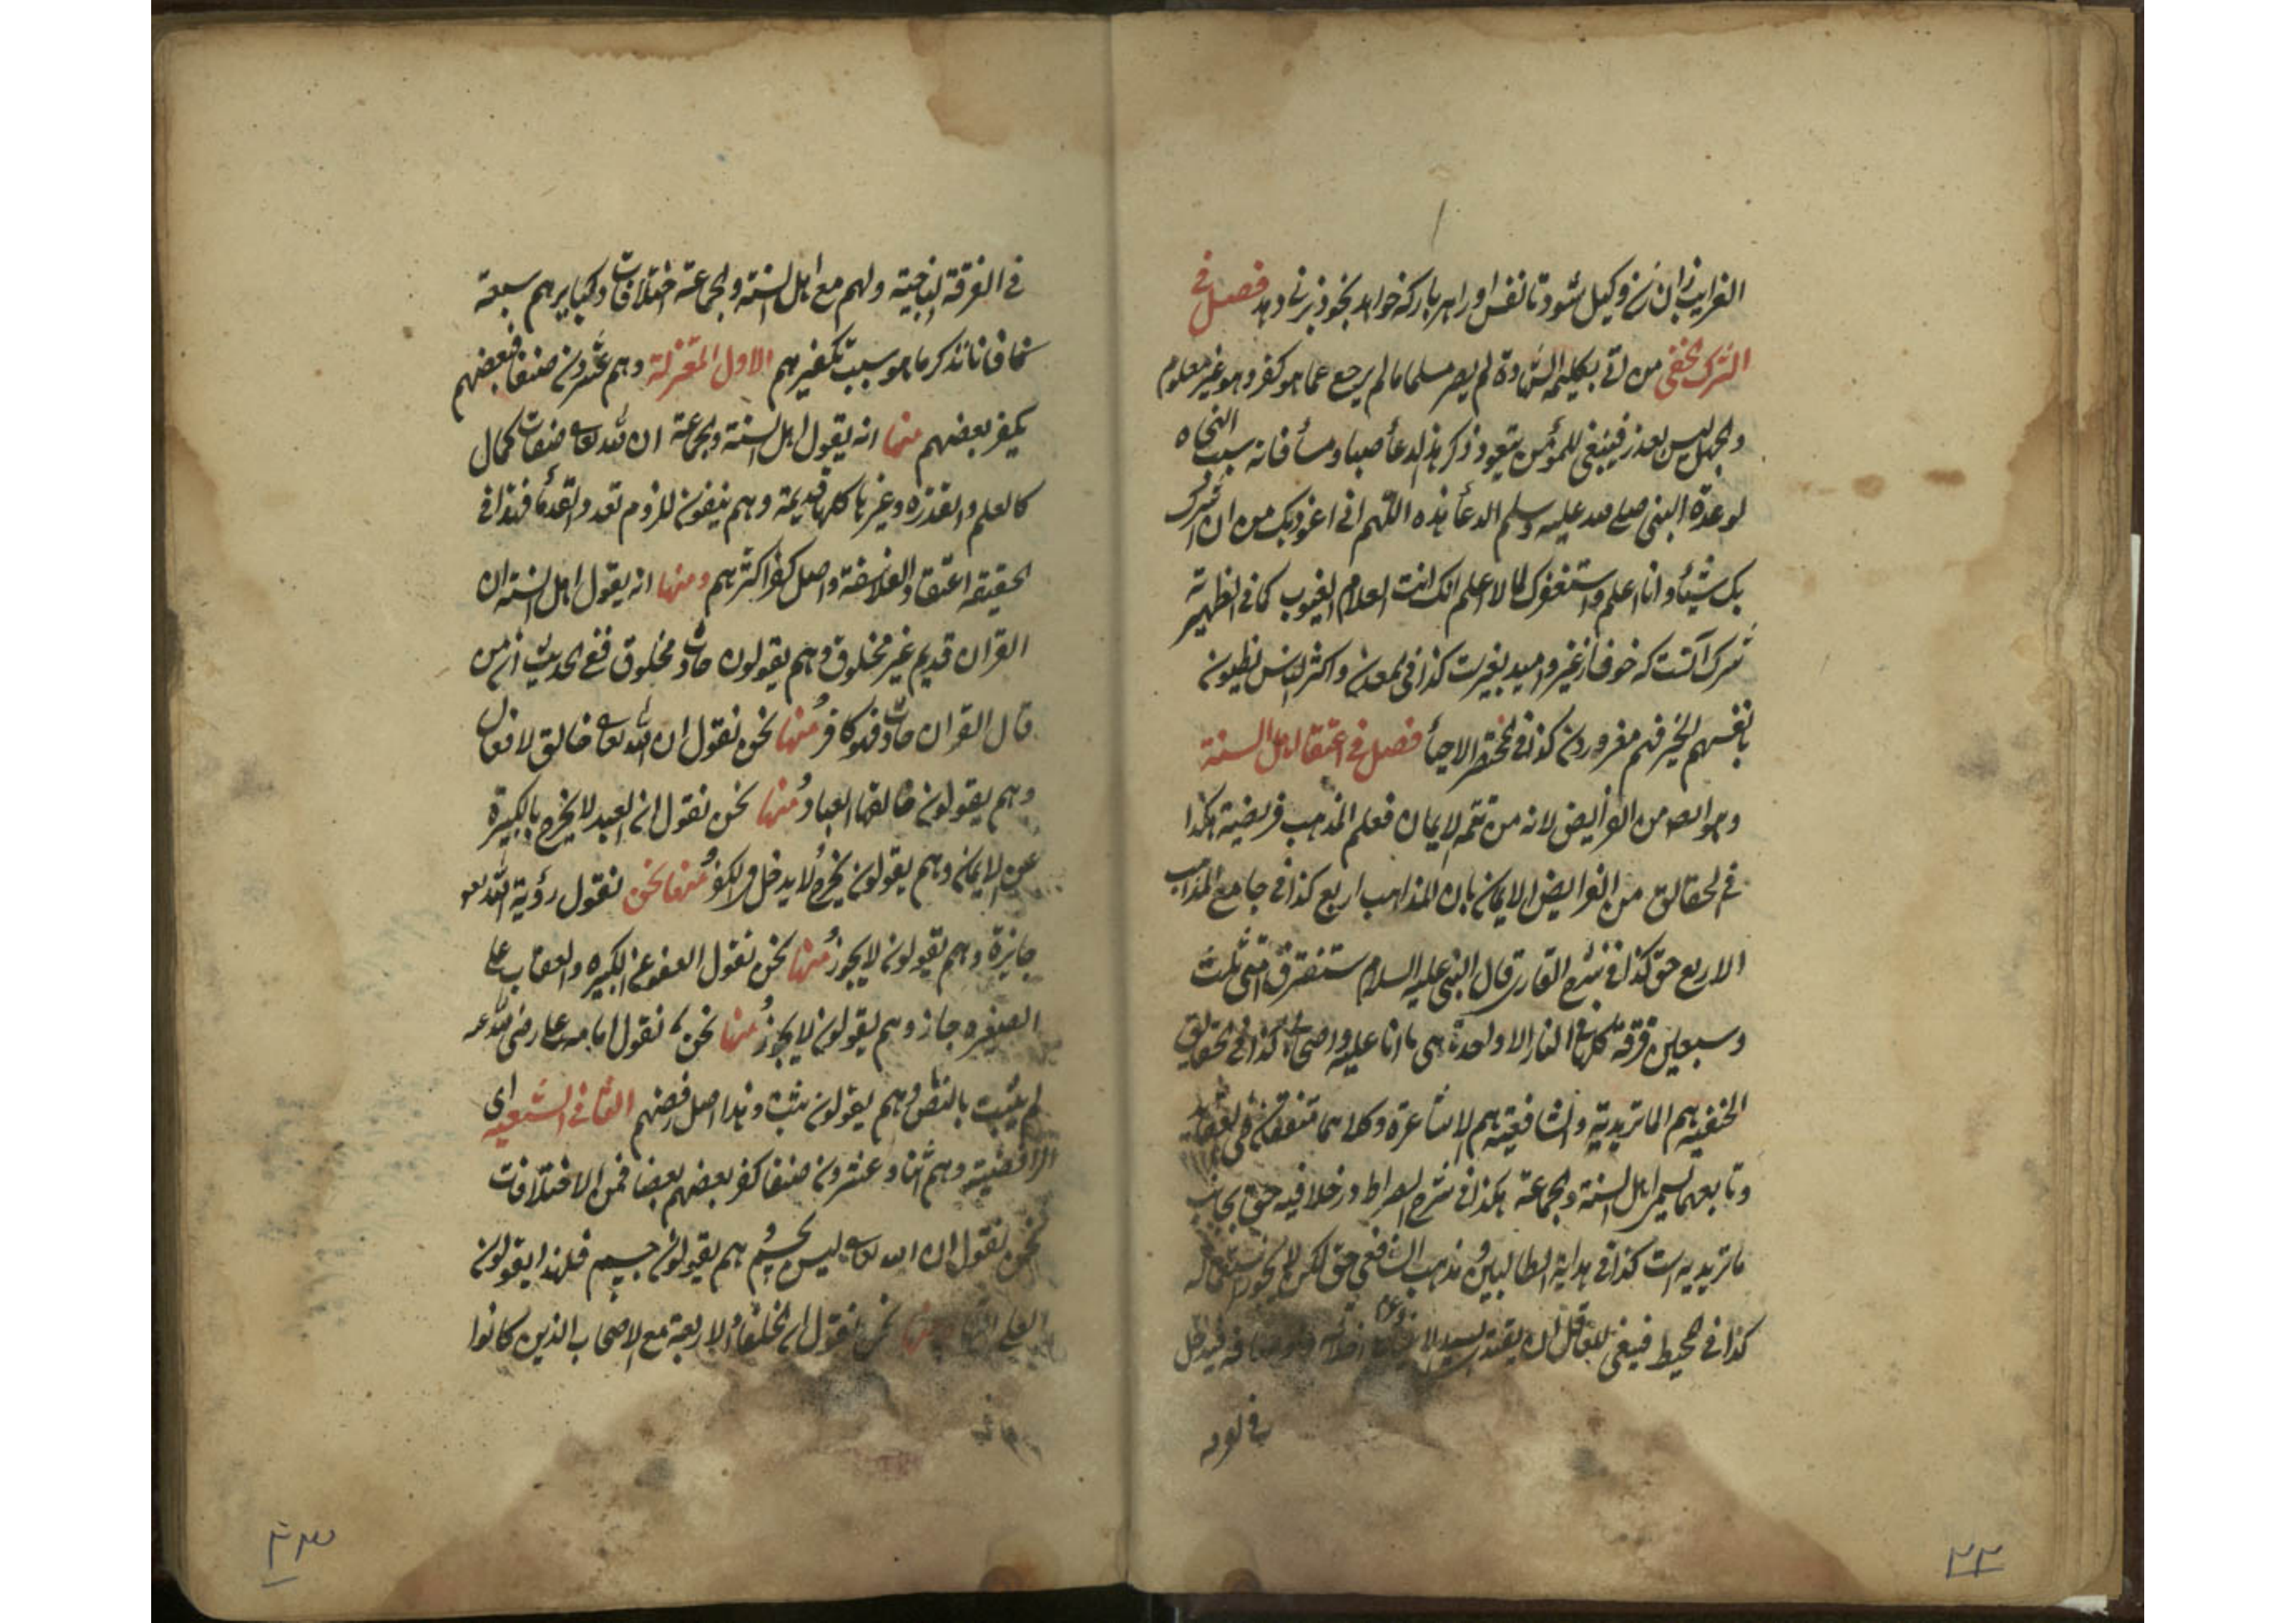 الغرايب زان زن وكيل شود تا نفس او را هر باركه خواهد بخود بزنى دهد فصل فى
الشرك الخفى من اتى بكلمه الشهادة لم يصر مسلما ما لم يرجع عما هو كفر وهو غير معلوم
والجهل ليس بعذر فينبغى للمؤمن يتعوذ ذكر هذا لدعأ صباو مسأ فانه سبب النجاه
لوعدة النبى صلى الله عليه وسلم الدعا هذه اللهم انى اعوذ بك من ان اشرك
بك شيئا وانا اعلم واستغفرك لما لا اعلم انك انت العلام الغيوب كما فى الظهيرية
شرك آنست كه خوف از غير واميد بغيرست كذا فى المعدن واكثر الناس يظنون
بانفسهم الخير فهم مغرورون كذا فى مختصر الاحيأ فصل فى اعتقاد اهل السنة
وهو ايضا من الفرايض لانه من تتمه الايمان فعلم المذهب فريضة هكذا
فى الحقايق من الفرايض الايمان بان المذاهب اربع كذا فى جامع المذاهب
الاربع حق كذا فى شرح القارى قال النبى عليه السلام ستفترق امتى ثلث
وسبعين فرقة كلها فى النار الا واحدة هى ما انا عليه واصحابى كذا فى الحقايق
الحنفيه هم الماتريدية والشافعية هم الاشاعرة وكلاهما متفقان فى العقايد
وتابعهما يسمى اهل السنة والجماعة هكذا فى شرح الصراط ودر خلافيه حق بجانب
ماتريديه است كذا فى هداية الطالبين و مذهب الشافعى حق لكن لا يجوز انتقاله
كذا فى المحيط فينبغى للعاقل ان يقتد بسيد الانبيأ فيدخل
فى الفرقة الناجية ولهم مع اهل السنة والجماعة اختلافات وكبايرهم سبعة
فانا نذكر ما هو سبب تكفيرهم الاول المعتزلة وهم عشرون صنفا فبعضهم
يكفر بعضهم منها انه يقول اهل السنة والجماعة ان لله تعالى صفات كمال
كالعلم والقدره وغيرها كلها قديمة وهم ينفون للزوم تعدد القدمأ فهذا فى
الحقيقه اعتقاد الفلاسفة واصل كفر اكثرهم ومنها انه يقول اهل السنة ان
القران قديم غير مخلوق وهم يقولون حادث مخلوق ففى الحديث ان من
قال القران حادث فهو كافر و منها نحن نقول ان الله تعالى خالق لافعال
وهم يقولون خالقها العباد و منها نحن نقول ان العبد لا يخرج بالكبيرة
عن الايمان وهم يقولون يخرج ولا يدخل فى الكفر و منها نحن نقول رؤية الله تعالى
جايزة وهم يقولون لا يجوز و منها نحن نقول العفو عن الكبيره والعقاب على
الصغيره جاز وهم يقولون لا يجوز و منها نحن نقول امامه على رضى الله عنه
لم يثبت بالنص وهم يقولون يثبت وهذا اصل رفضهم الثانى الشعيه اى
الرافضية وهم اثنا وعشرون صنفا كفر بعضهم بعضا فمن الاختلافات
نحن نقول ان الله تعالى ليس بجسم و هم يقولون جسم فلهذا يقولون
منها نحن نقول ان الخلفأ الاربعة مع الاصحاب الذين كانوا
۲۲